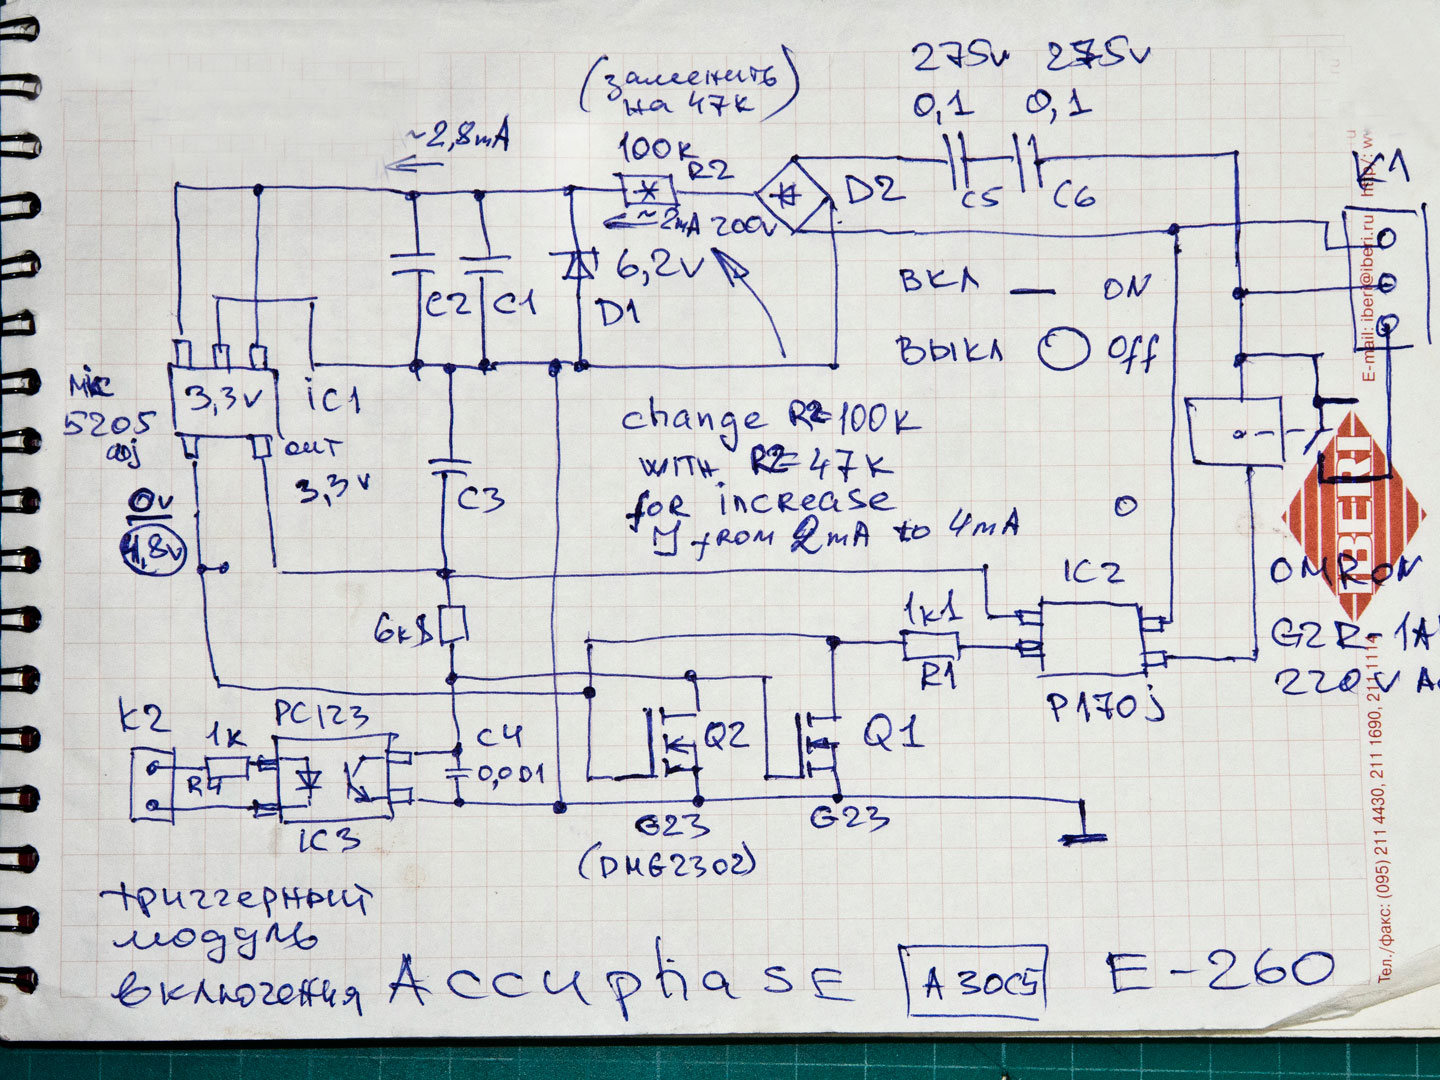 275v 275v
0,1 0,1
(заменить
на 47к)
~2,8mA
100к
R2
D2
C5
C6
K1
~2mA
200v
6,2v
D1
C2
C1
ВКЛ — ON
ВЫКЛ O Off
mic
5205
adj
3,3v
iC1
out
3,3v
0v
4,8v
C3
change R2=100k
with R2=47k
for increase
J from 2mA to 4mA
IBERI
E-mail: iberi@iberi.ru http/: w
Тел./факс: (095) 211 4430, 211 1690, 211 1114
OMRON
G2R-1A
220v A
IC2
P170j
6к8
1к1
R1
K2
1к
R4
PC123
IC3
C4
0,001
Q2
Q1
G23
(DMG2302)
G23
триггерный
модуль
включения Accuphase A30C5 E-260